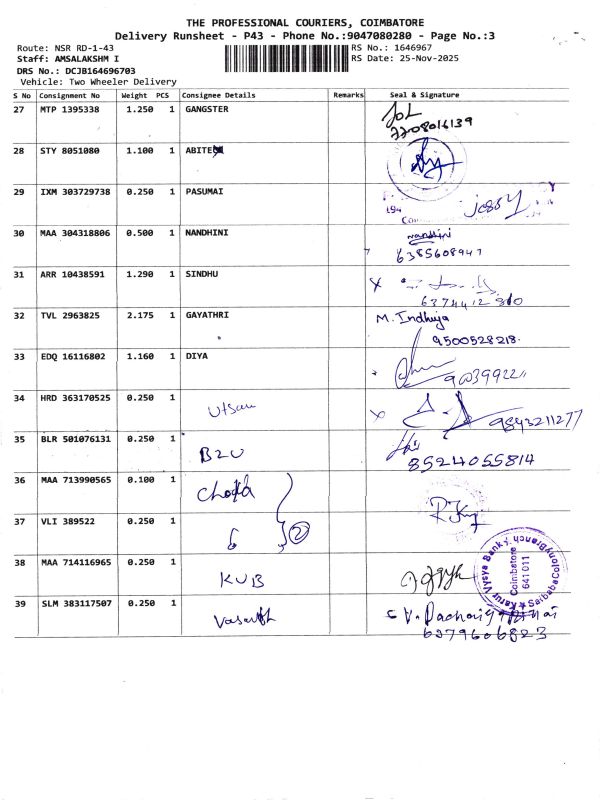 THE PROFESSIONAL COURIERS, COIMBATORE
Delivery Runsheet - P43 - Phone No.:9047080280 - Page No.:3
Route: NSR RD-1-43 RS No.: 1646967
Staff: AMSALAKSHM I RS Date: 25-Nov-2025
DRS No.: DCJB164696703
Vehicle: Two Wheeler Delivery
S No Consignment No Weight PCS Consignee Details Remarks Seal & Signature
27 MTP 1395338 1.250 1 GANGSTER
7708016139
28 STY 8051080 1.100 1 ABITE
29 IXM 303729738 0.250 1 PASUMAI
jessy
30 MAA 304318806 0.500 1 NANDHINI nandhini
6385608947
31 ARR 10438591 1.290 1 SINDHU
32 TVL 2963825 2.175 1 GAYATHRI M. Indhuja
9500528218.
33 EDQ 16116802 1.160 1 DIYA
34 HRD 363170525 0.250 1
9843211277
35 BLR 501076131 0.250 1 B2U
8524055814
36 MAA 713990565 0.100 1
37 VLI 389522 0.250 1 2
38 MAA 714116965 0.250 1 KVB
Karur Vysya Bank Saibaba Colony Branch
Coimbatore
641 011
39 SLM 383117507 0.250 1 Vasanth
6379606823